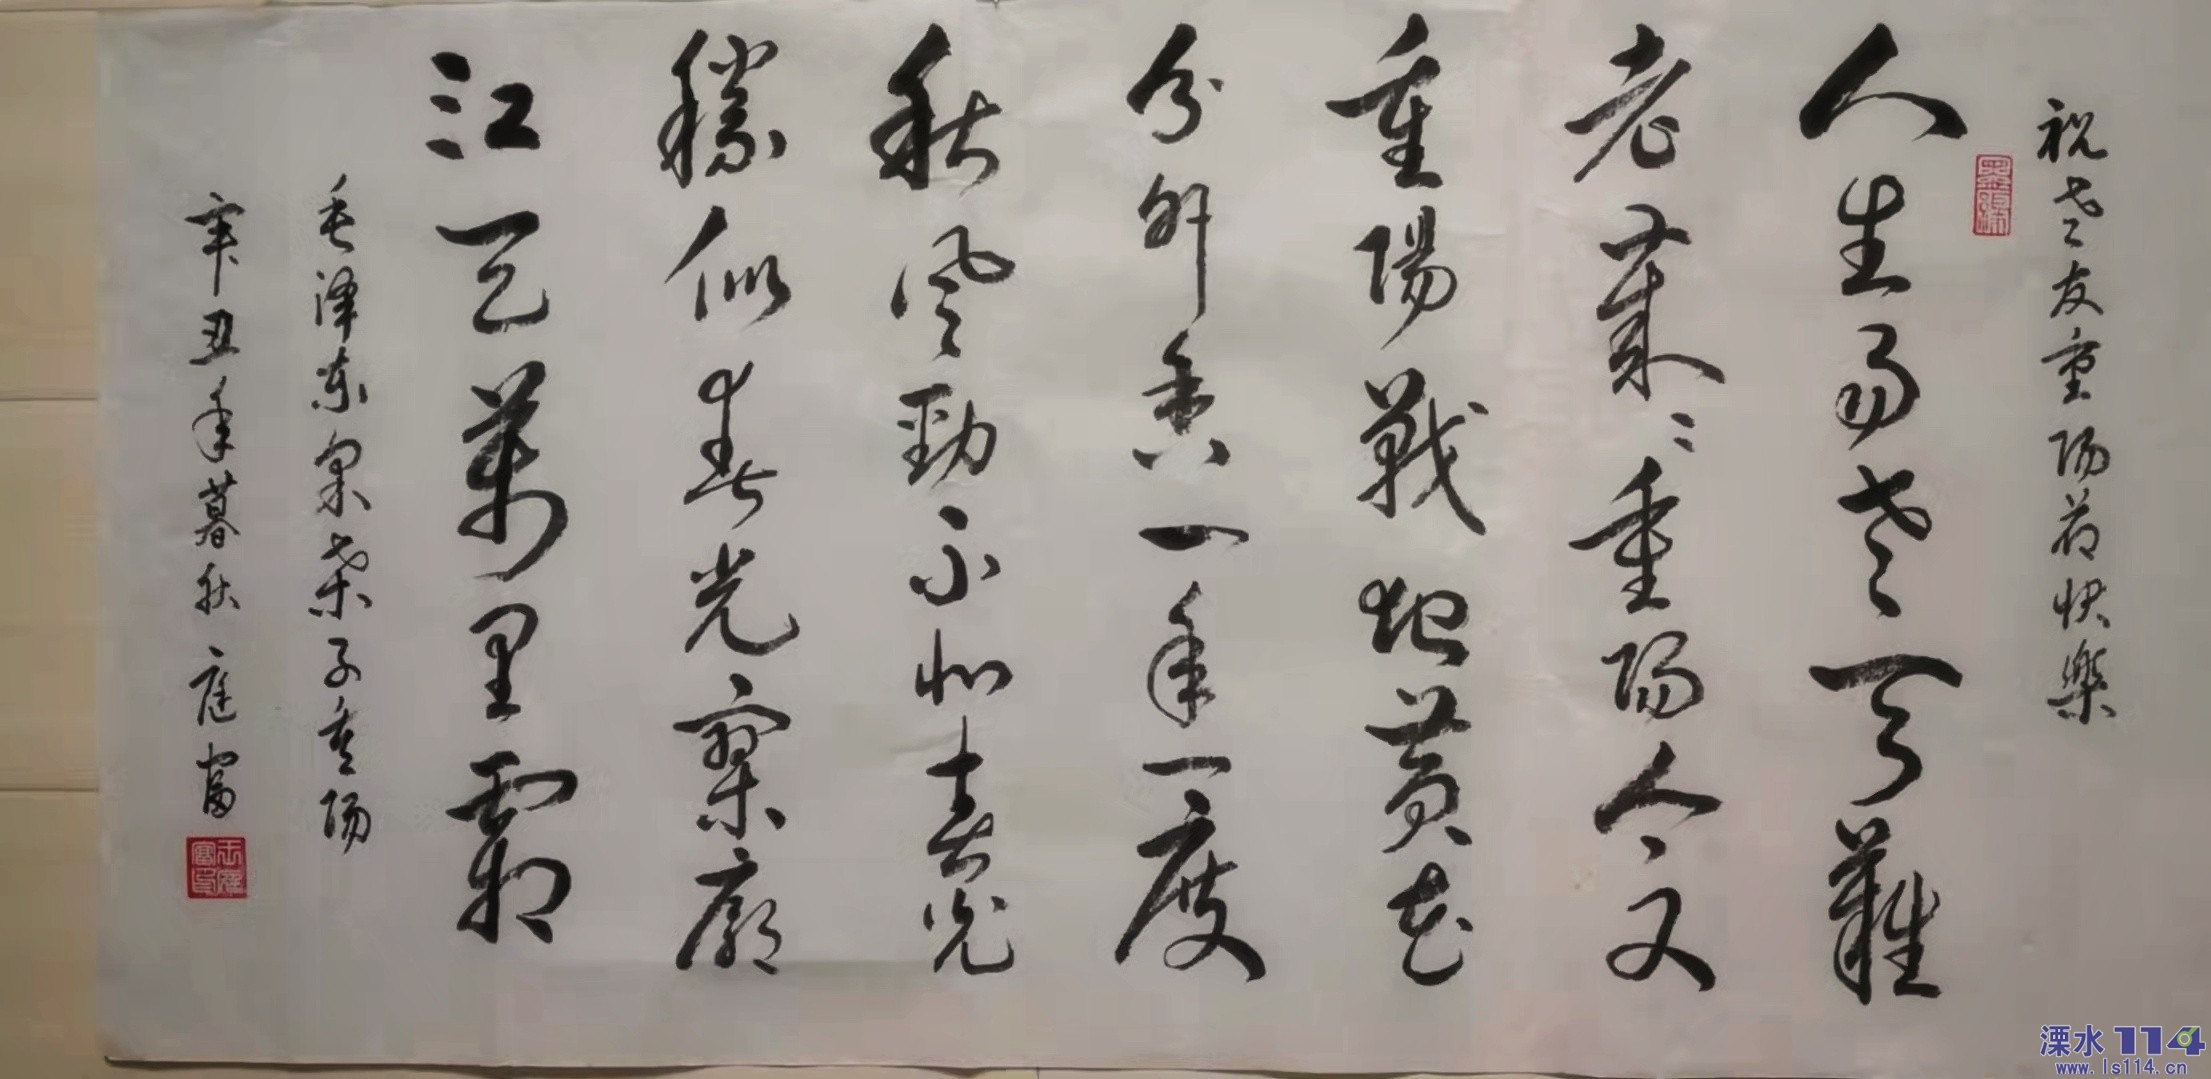 祝老友重陽节快樂
人生易老天難
老歲々重陽今又
重陽戰地黃花
分外香一年一度
秋風勁不似春光
勝似春光寥廓
江天萬里霜
毛澤東采桑子重陽
辛丑年暮秋庭富
溧水114
www.ls114.cn